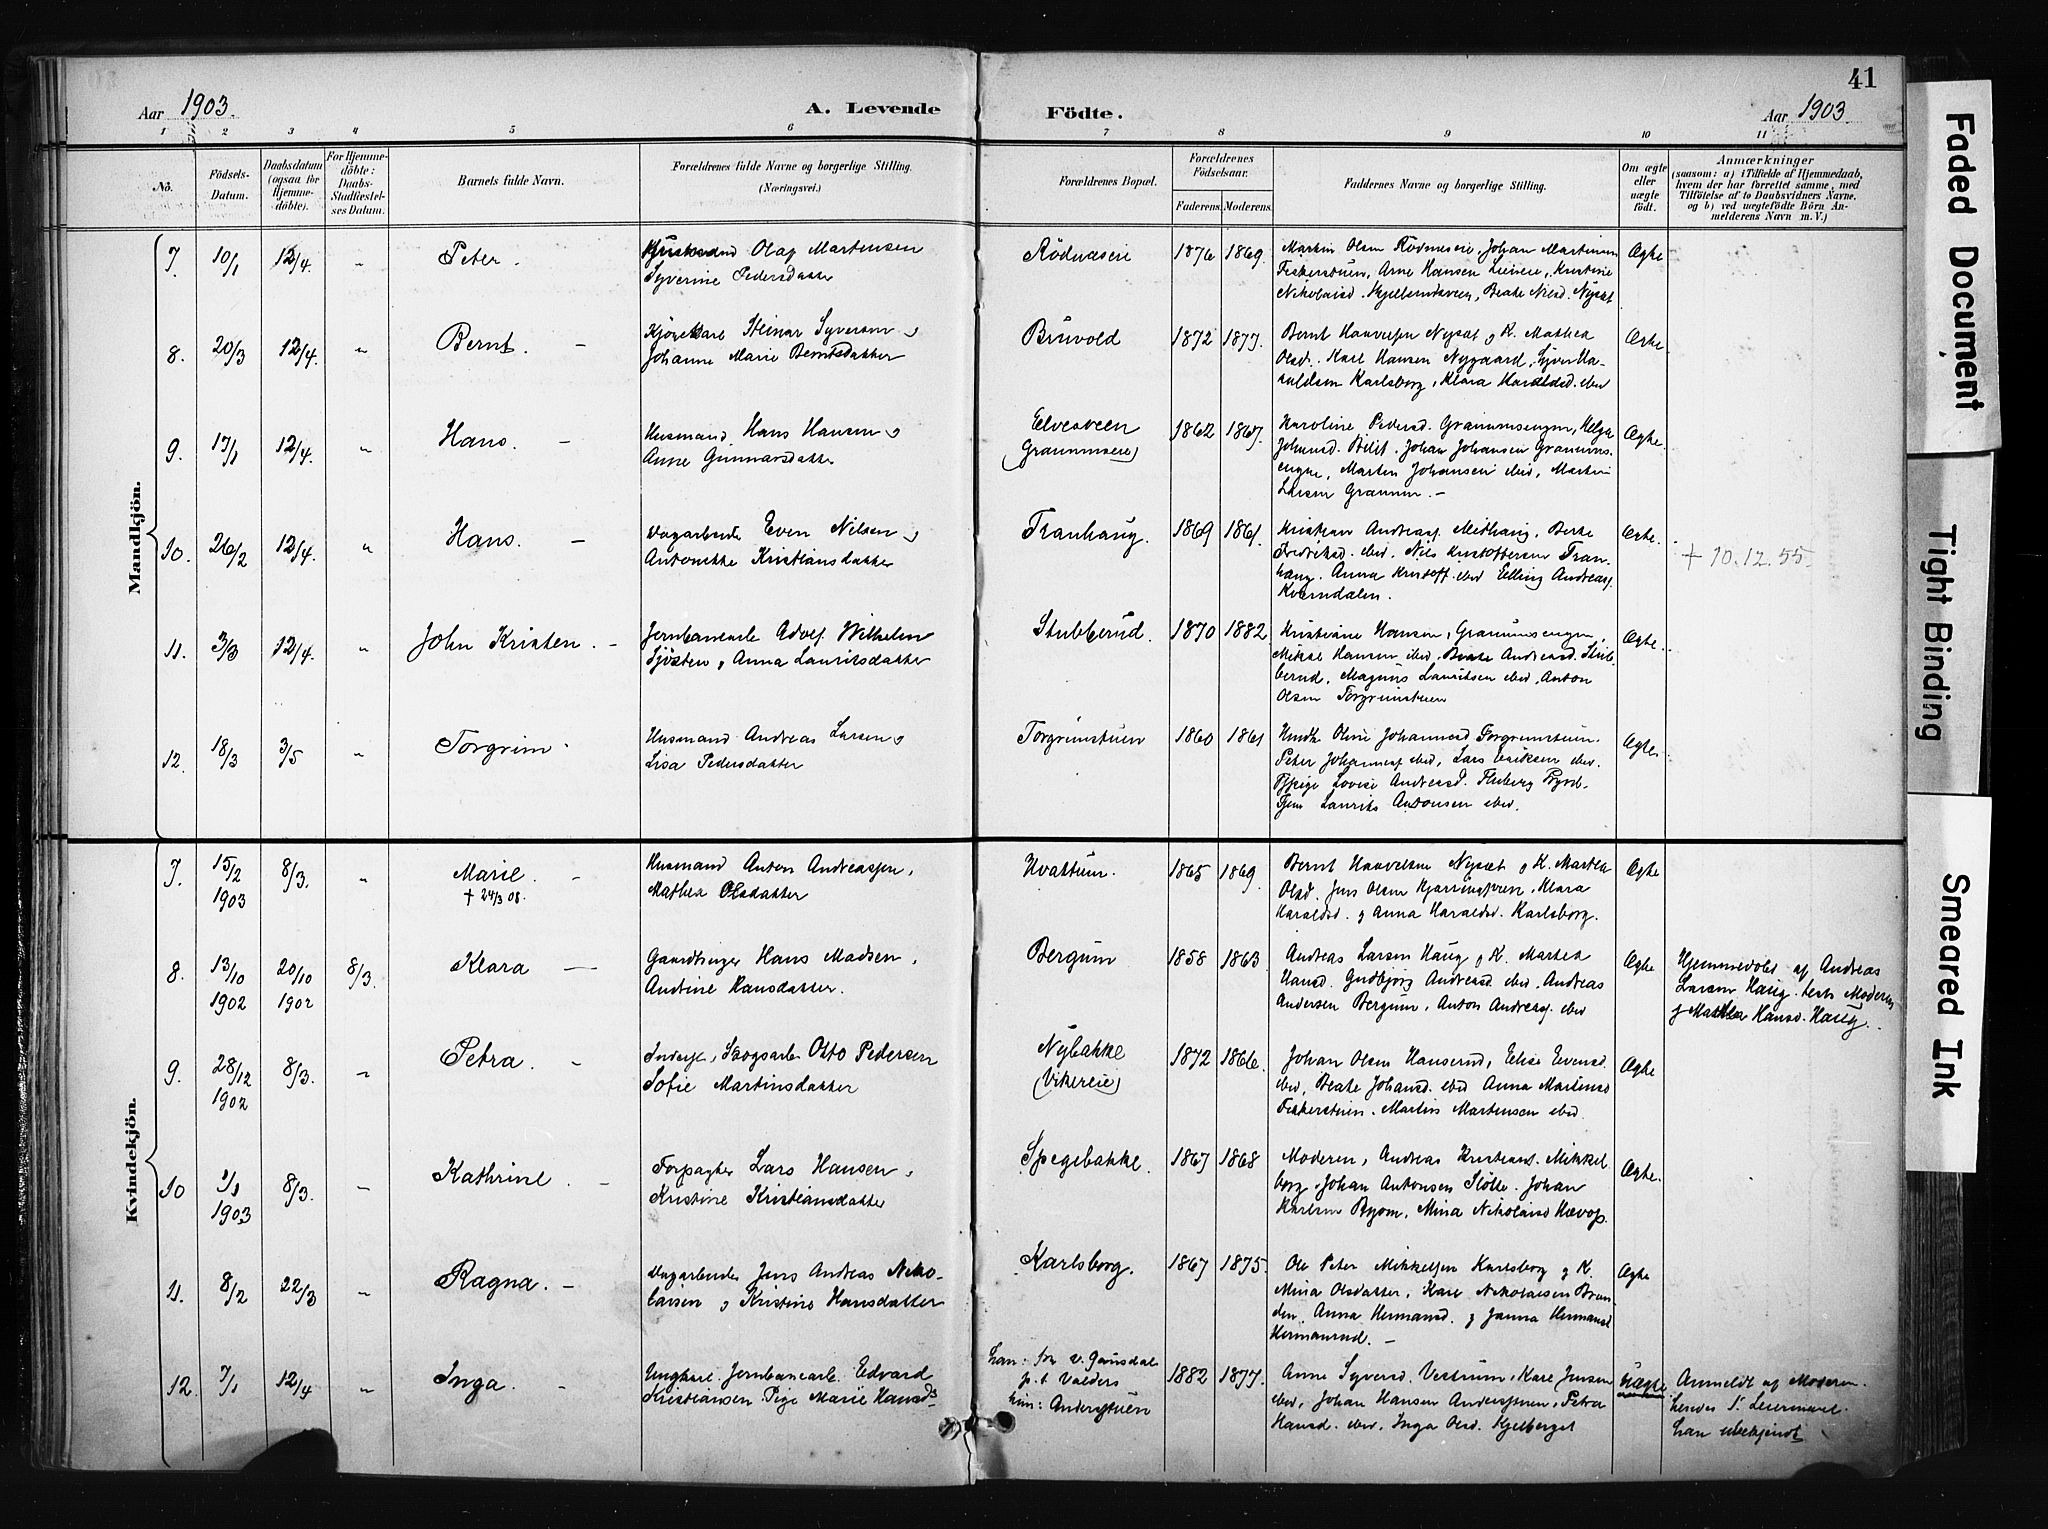 41
Aar 1903.
A. Levende
Födte.
Aar 1903
1 2 3 4 5 6 7 8 9 10 11
No.
Födsels-Datum.
Daabsdatum (ogsaa for Hjemme-döbte).
For Hjemme-döbte: Daabs-Stadfæstel-ses Datum.
Barnets fulde Navn.
Forældrenes fulde Navne og borgerlige Stilling. (Næringsvei.)
Forældrenes Bopæl.
Forældrenes Födselsaar.
Faderens. Moderens.
Faddernes Navne og borgerlige Stilling.
Om ægte eller uægte födt.
Anmærkninger
(saasom: a) i Tilfælde af Hjemmedaab, hvem der har forrettet samme, med Tilföielse af to Daabsvidners Navne, og b) ved uægtefödte Börn An-melderens Navn m. V.)
Mandkjön.
7. 10/1 12/4. " Peter.
Olaf Martensen
Syverine Pedersdatter
1876 1869.
Ægte
8. 20/3 12/4. " Bernt. -
Steinar Syversen
Johanne Marie Berntsdatter
Bruvold 1872 1877.
Bernt Haavelsen Nysæt og K. Mathea
Olsd. Karl Hansen Nygaard, Syver Ha-
raldsen Karlsborg, Klara Haraldsd. ebd
Ægte.
9. 17/1 12/4. " Hans. -
Husmand Hans Hansen
Anne Gunnarsdatter
Elvesveen
1862 1867.
Karoline Pedersd.
Johan Johansen
Martin Johansen ebd, Martin
Larsen
Ægte.
10. 26/2 12/4 " Hans. -
Dagarbeider Even Nilsen
Antonette Kristiansdatter
Tranhaug. 1869 1861.
Kristian Andreass. Midthaug, Berte
Fredriksd. ebd. Nils Kristoffersen Tran-
haug. Anna Kristoff. ebd Elling Andreass.
Kverndalen.
Ægte.
+ 10.12.55.
11. 3/3 12/4. " John Kristen. -
Jernbanearb. Adolf Wilhelm
Sjösten, Anna Lauritsdatter
Stubberud. 1870 1882
Hansen, Granumsengen,
Mikal Hansen ebd, Beate Andreasd. Stub-
berud, Magnus Lauritsen ebd, Anton
Olsen Torgrimstuen
Ægte.
12. 18/3 3/5 " Torgrim.
Husmand Andreas Larsen
Lisa Pedersdatter
Torgrimstuen 1860 1861
Johannesd Torgrimstuen.
Peter Johanness ebd, Lars Eriksen ebd.
Pige Lovise Andreasd. Fluberg
Laurits Antonsen ebd.
Ægte.
Kvindekjön.
7. 15/2 1903 8/3. " Marie. -
+ 24/3 08.
Husmand Anton Andreassen,
Mathea Olsdatter
Hvattum. 1865 1869.
Bernt Haavelsen Nysæt og K. Mathea
Olsd. Jens Olsen Klara
Haraldsd. og Anna Haraldsd. Karlsborg.
Ægte
8. 13/10 1902 20/10 1902 8/3. Klara -
Gaardbruger Hans Madsen,
Andrine Hansdatter.
Bergum 1858 1863
Andreas Larsen Haug og K. Marthea
Hansd. Gudbjörg Andreasd ebd. Andreas
Andersen Bergum, Anton Andreass. ebd
Ægte
Hjemmedöbt af Andreas
Larsen Haug. test. Moderen
og Mathea Hansd. Haug.
9. 28/12 1902 8/3. " Petra. -
Inderst, Skogsarb. Otto Pedersen
Sofie Martinsdatter
Nybakke
(Vikereie)
1872 1866.
Johan Olsen Hanserud, Elise Evensd
ebd, Beate Johansd. ebd Anna Martinsd
Fiskerstuen. Martin Martensen ebd.
Ægte
10 2/1 1903 8/3. " Kathrine. -
Forpagter Lars Hansen,
Kristine Kristiansdatter
Spegebakke. 1867 1868
Moderen, Andreas Kristians. Mikkel-
borg, Johan Antonsen Slötte. Johan
Karlsen Byom, Mina Nikolaisd
Ægte.
11. 8/2 22/3 " Ragna. -
Dagarbeider Jens Andreas Niko-
laisen og Kristine Hansdatter
Karlsborg. 1867 1875.
Ole Peter Mikkelsen Karlsborg og K.
Mina Olsdatter, Karl Nikolaisen Bran-
den, Anna Hermansd. og Janna Hermansd
Hermanrud. -
Ægte
12. 7/1 12/4 " Inga. -
Ungkarl Jernbanearb. Edvard
Kristiansen Pige Marie Hansd.
han: fra v. Gausdal
p.t Valders
hun: Anderstuen
1882 1877.
Anne Syversd. Vestrum, Kari Jensen
ebd, Johan Hansen Anderstuen, Petra
Hansd. ebd, Inga Olsd. Kjelberget
Uægte.
Anmeldt af Moderen.
hendes 1. Leiermaal.
han ubekjendt
Faded Document
Tight Binding
Smeared Ink